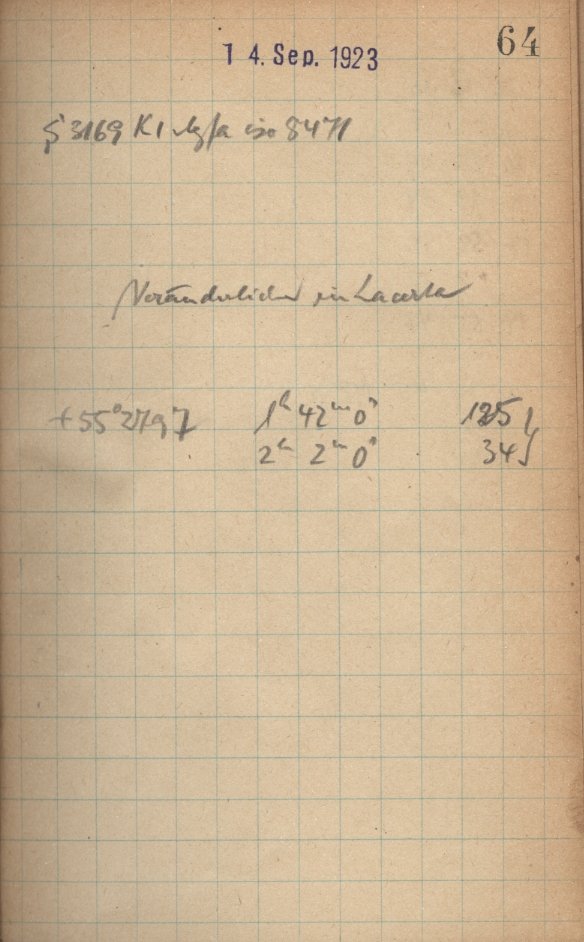 64
14. Sep. 1923
3169 8471
Veränderlicher in Lacerta
+55°2797 1ʰ 42ᵐ 0ˢ 125
2ʰ 2ᵐ 0ˢ 34